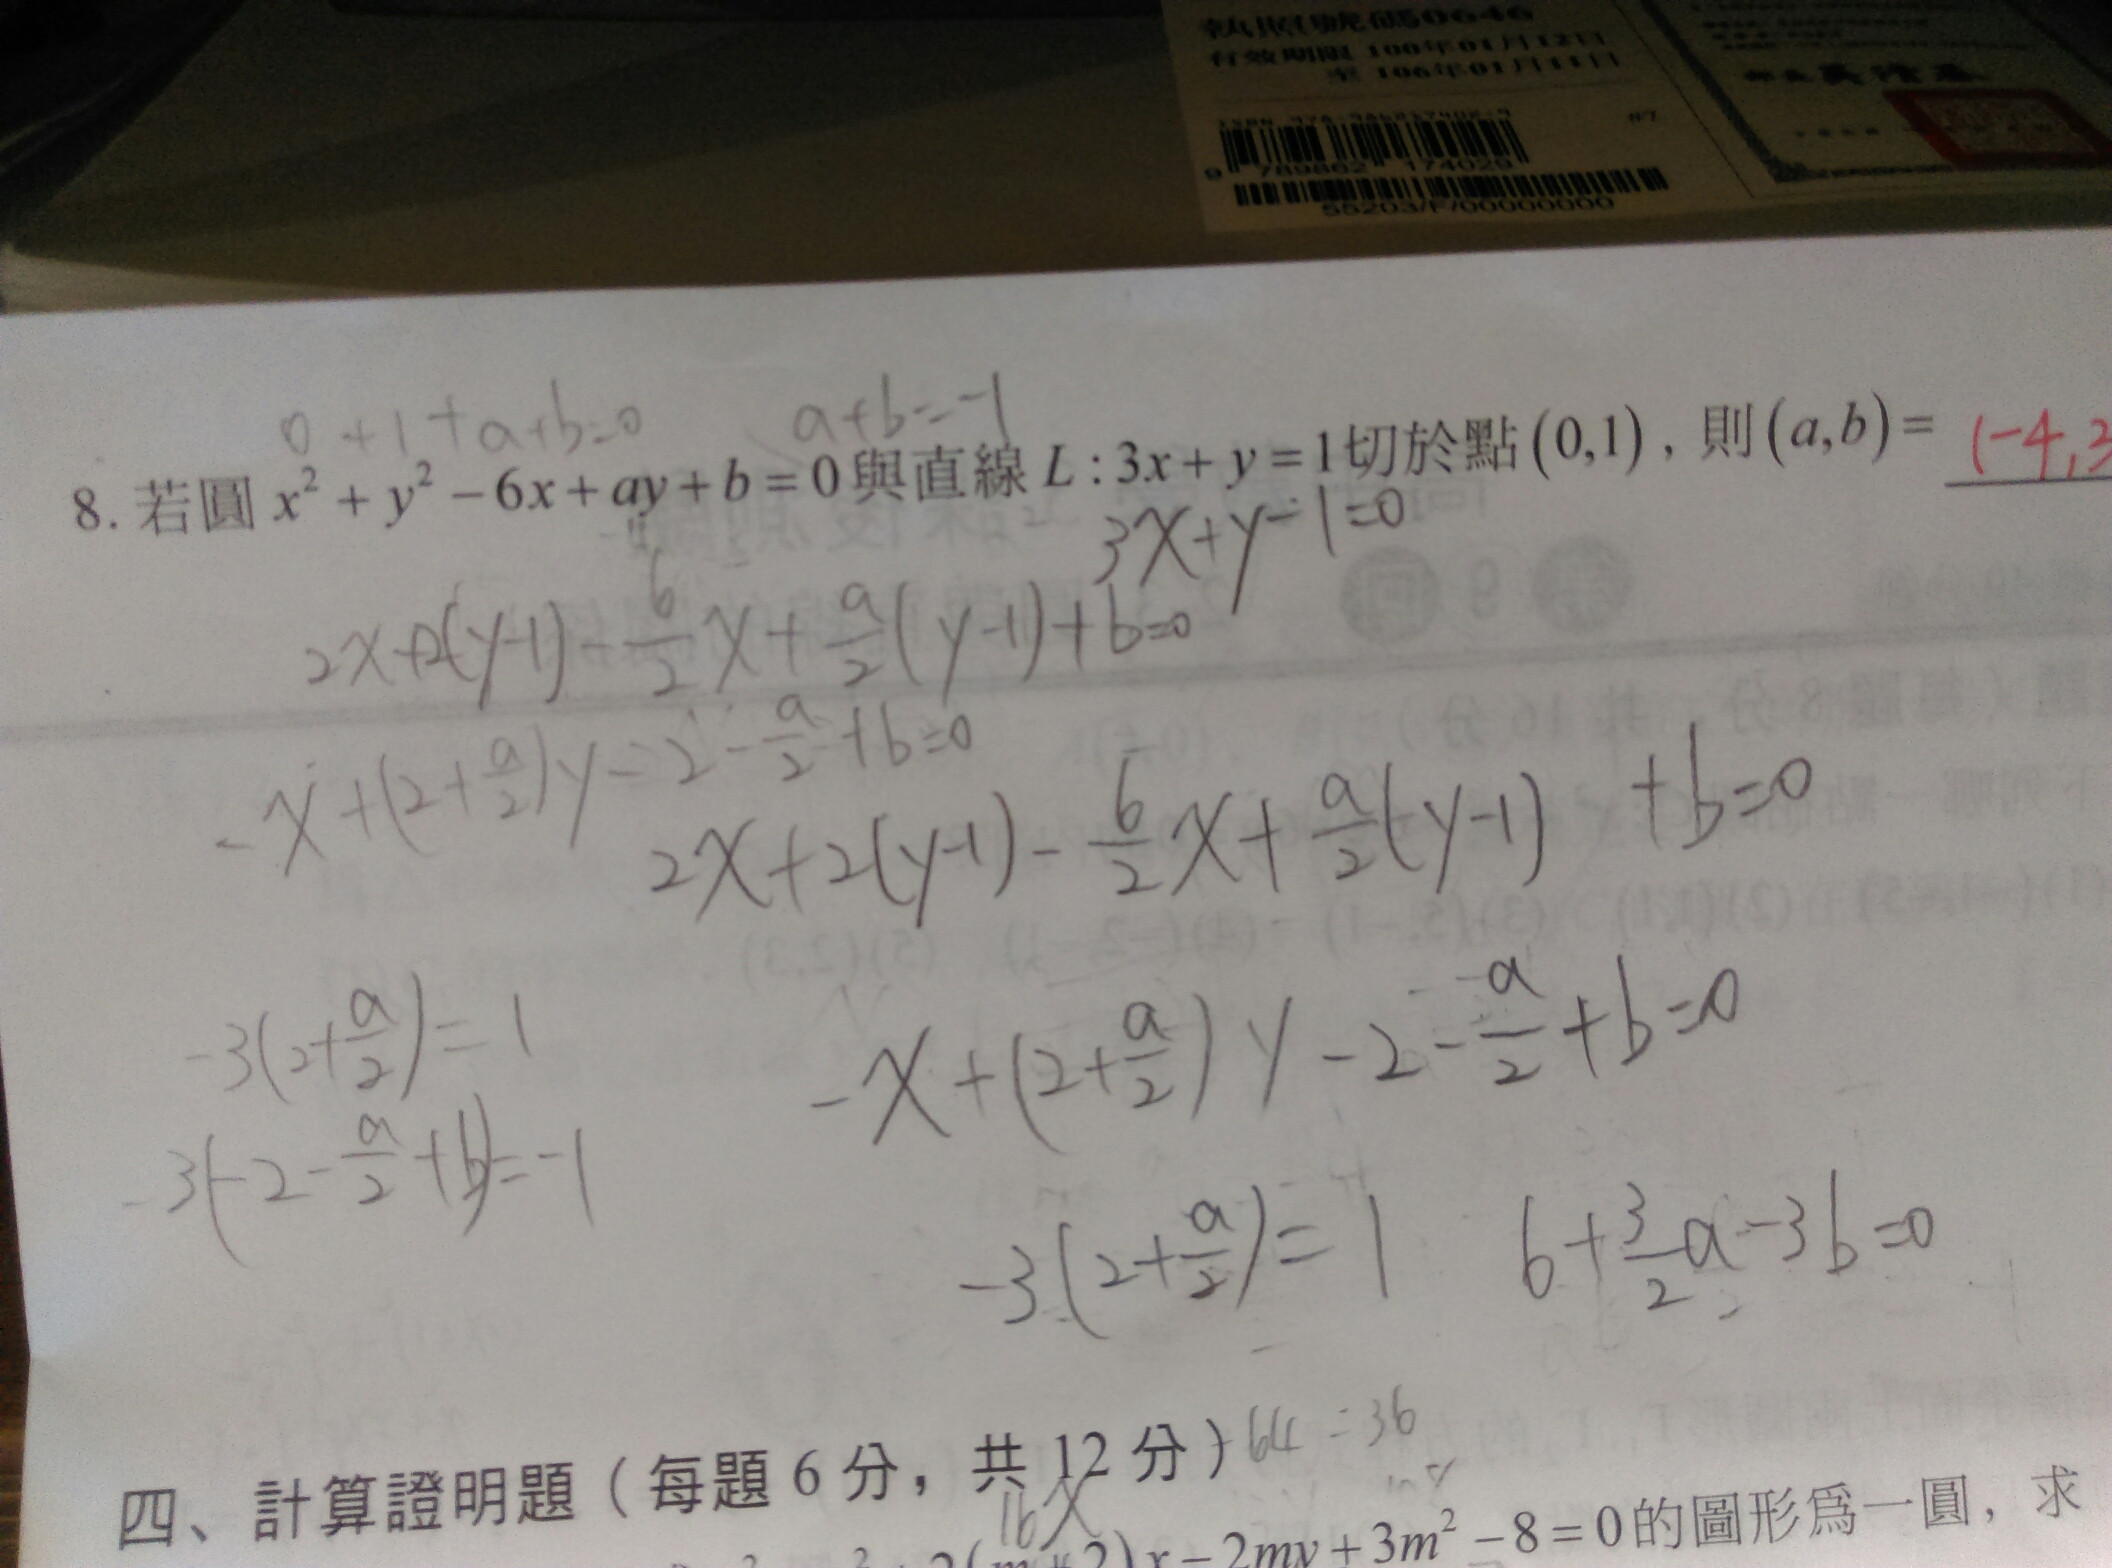 執照號碼0646
有效期限 100年01月12日
至 106年01月11日
9 789862 174029
55203/F/00000000
0+1+a+b=0 a+b=-1
8. 若圓 x²+y²-6x+ay+b=0 與直線 L:3x+y=1 切於點 (0,1), 則 (a,b)= (-4,3
3x+y-1=0
2x+2(y-1)-6/2x+a/2(y-1)+b=0
-x+(2+a/2)y-2-a/2+b=0
2x+2(y-1)-6/2x+a/2(y-1)+b=0
-3(2+a/2)=1
-x+(2+a/2)y-2-a/2+b=0
-3(-2-a/2+b)=-1
-3(2+a/2)=1 6+3/2a-3b=0
四、計算證明題(每題 6 分,共 12 分) 64=36
16x
(m+2)x-2my+3m²-8=0 的圖形為一圓,求